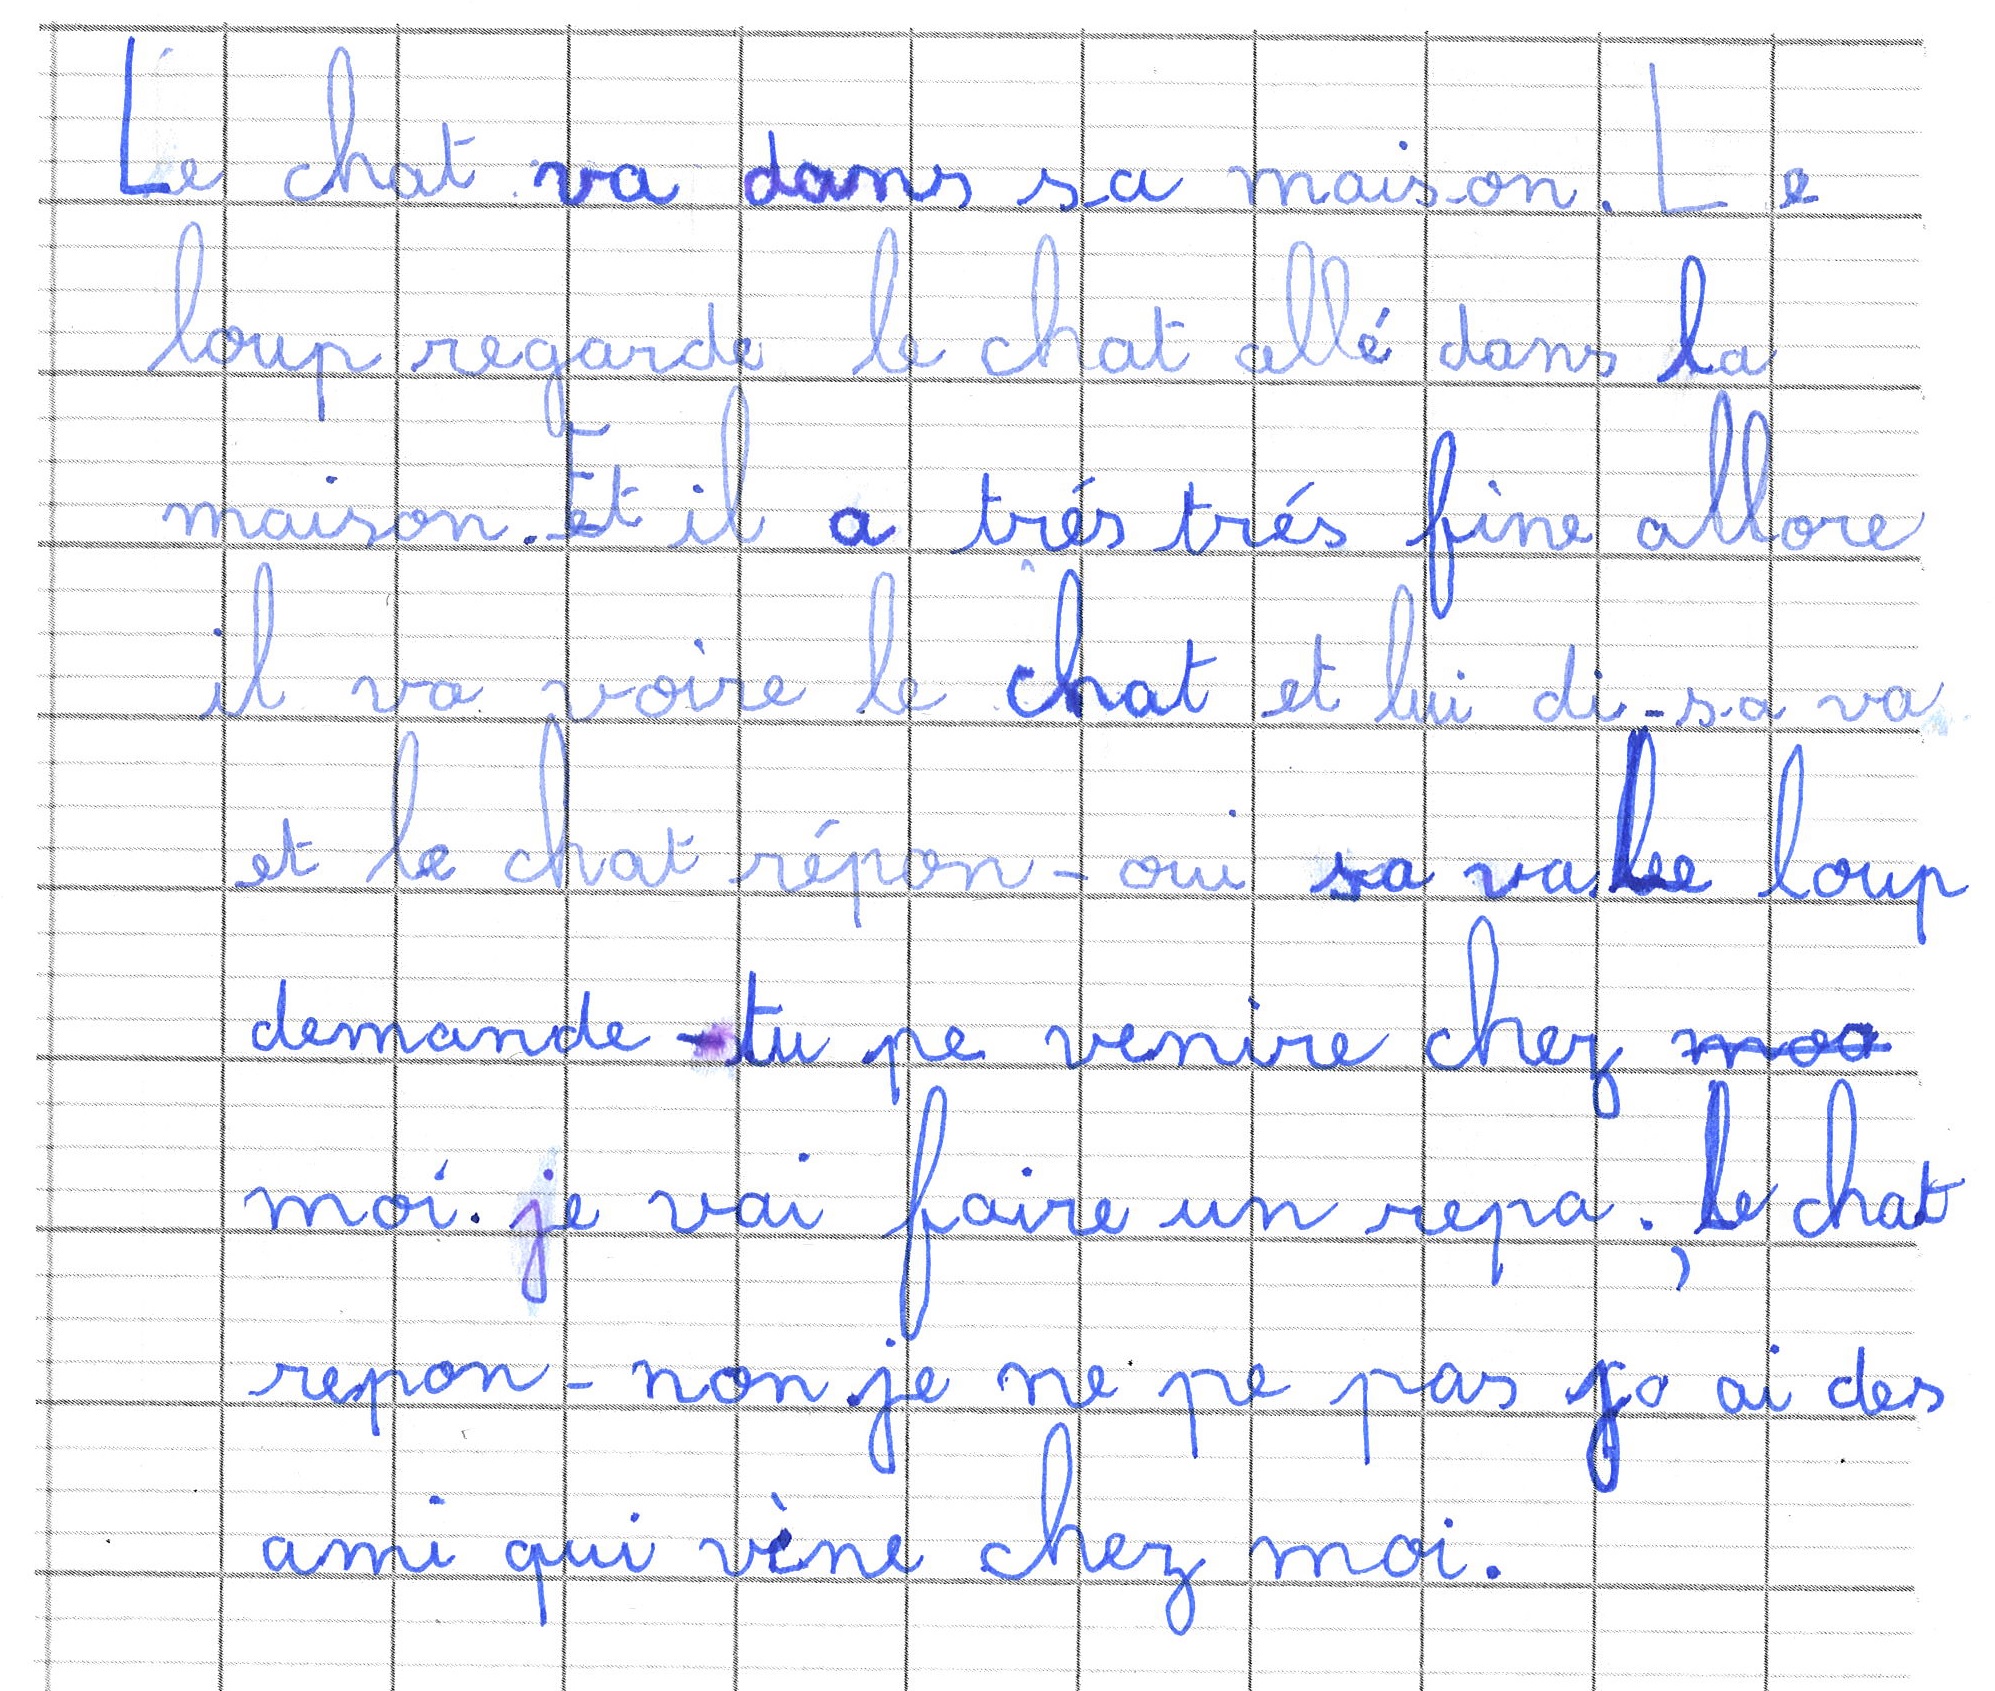 Le chat va dans sa maison. Le
loup regarde le chat allé dans la
maison. Et il a trés trés fine allore
il va voire le chat et lui di - sa va
et le chat répon - oui sa va. Le loup
demande - tu pe venire chez moa
moi. je vai faire un repa. Le chat
repon - non. je ne pe pas jo ai des
ami qui vène chez moi.